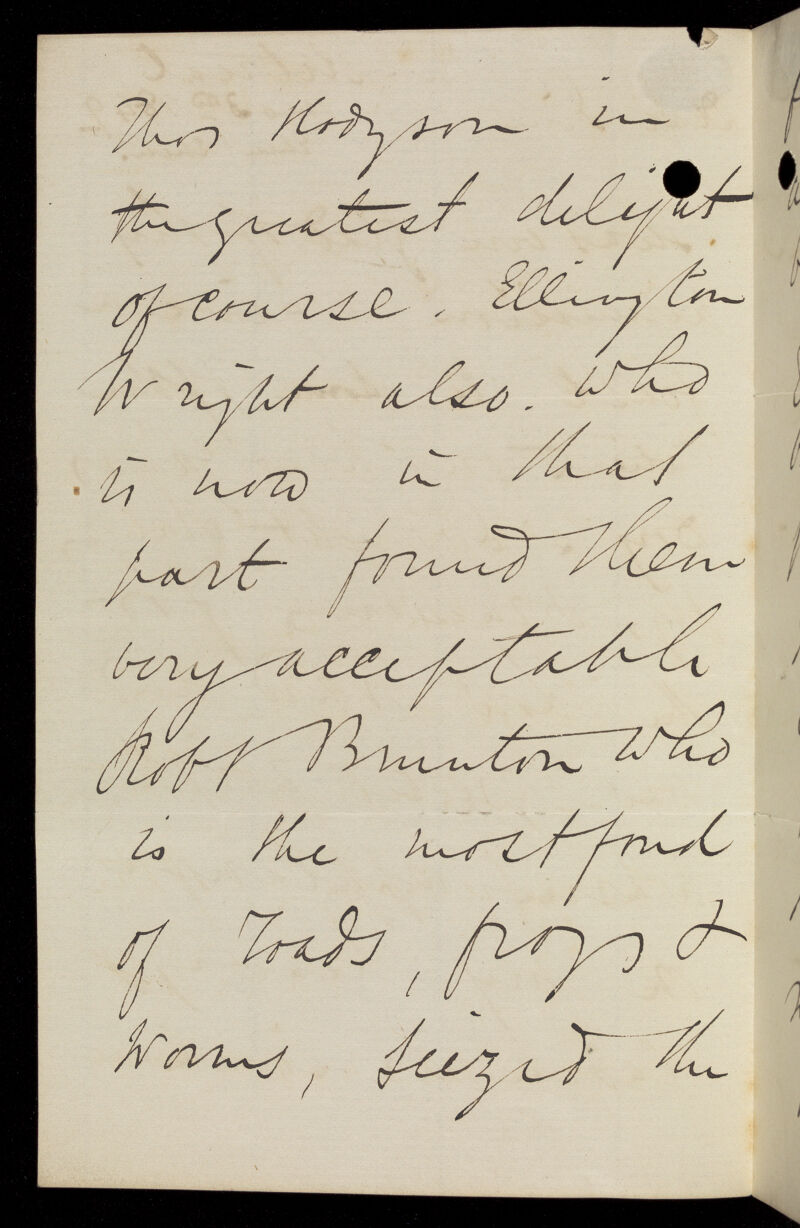 Thos Hodgson in
the greatest delight
of course. Ellington
Wright also. who
is now in that
part found them
very acceptable
Robt Brunton who
is the most fond
of Toads, frogs &
Worms, seized the